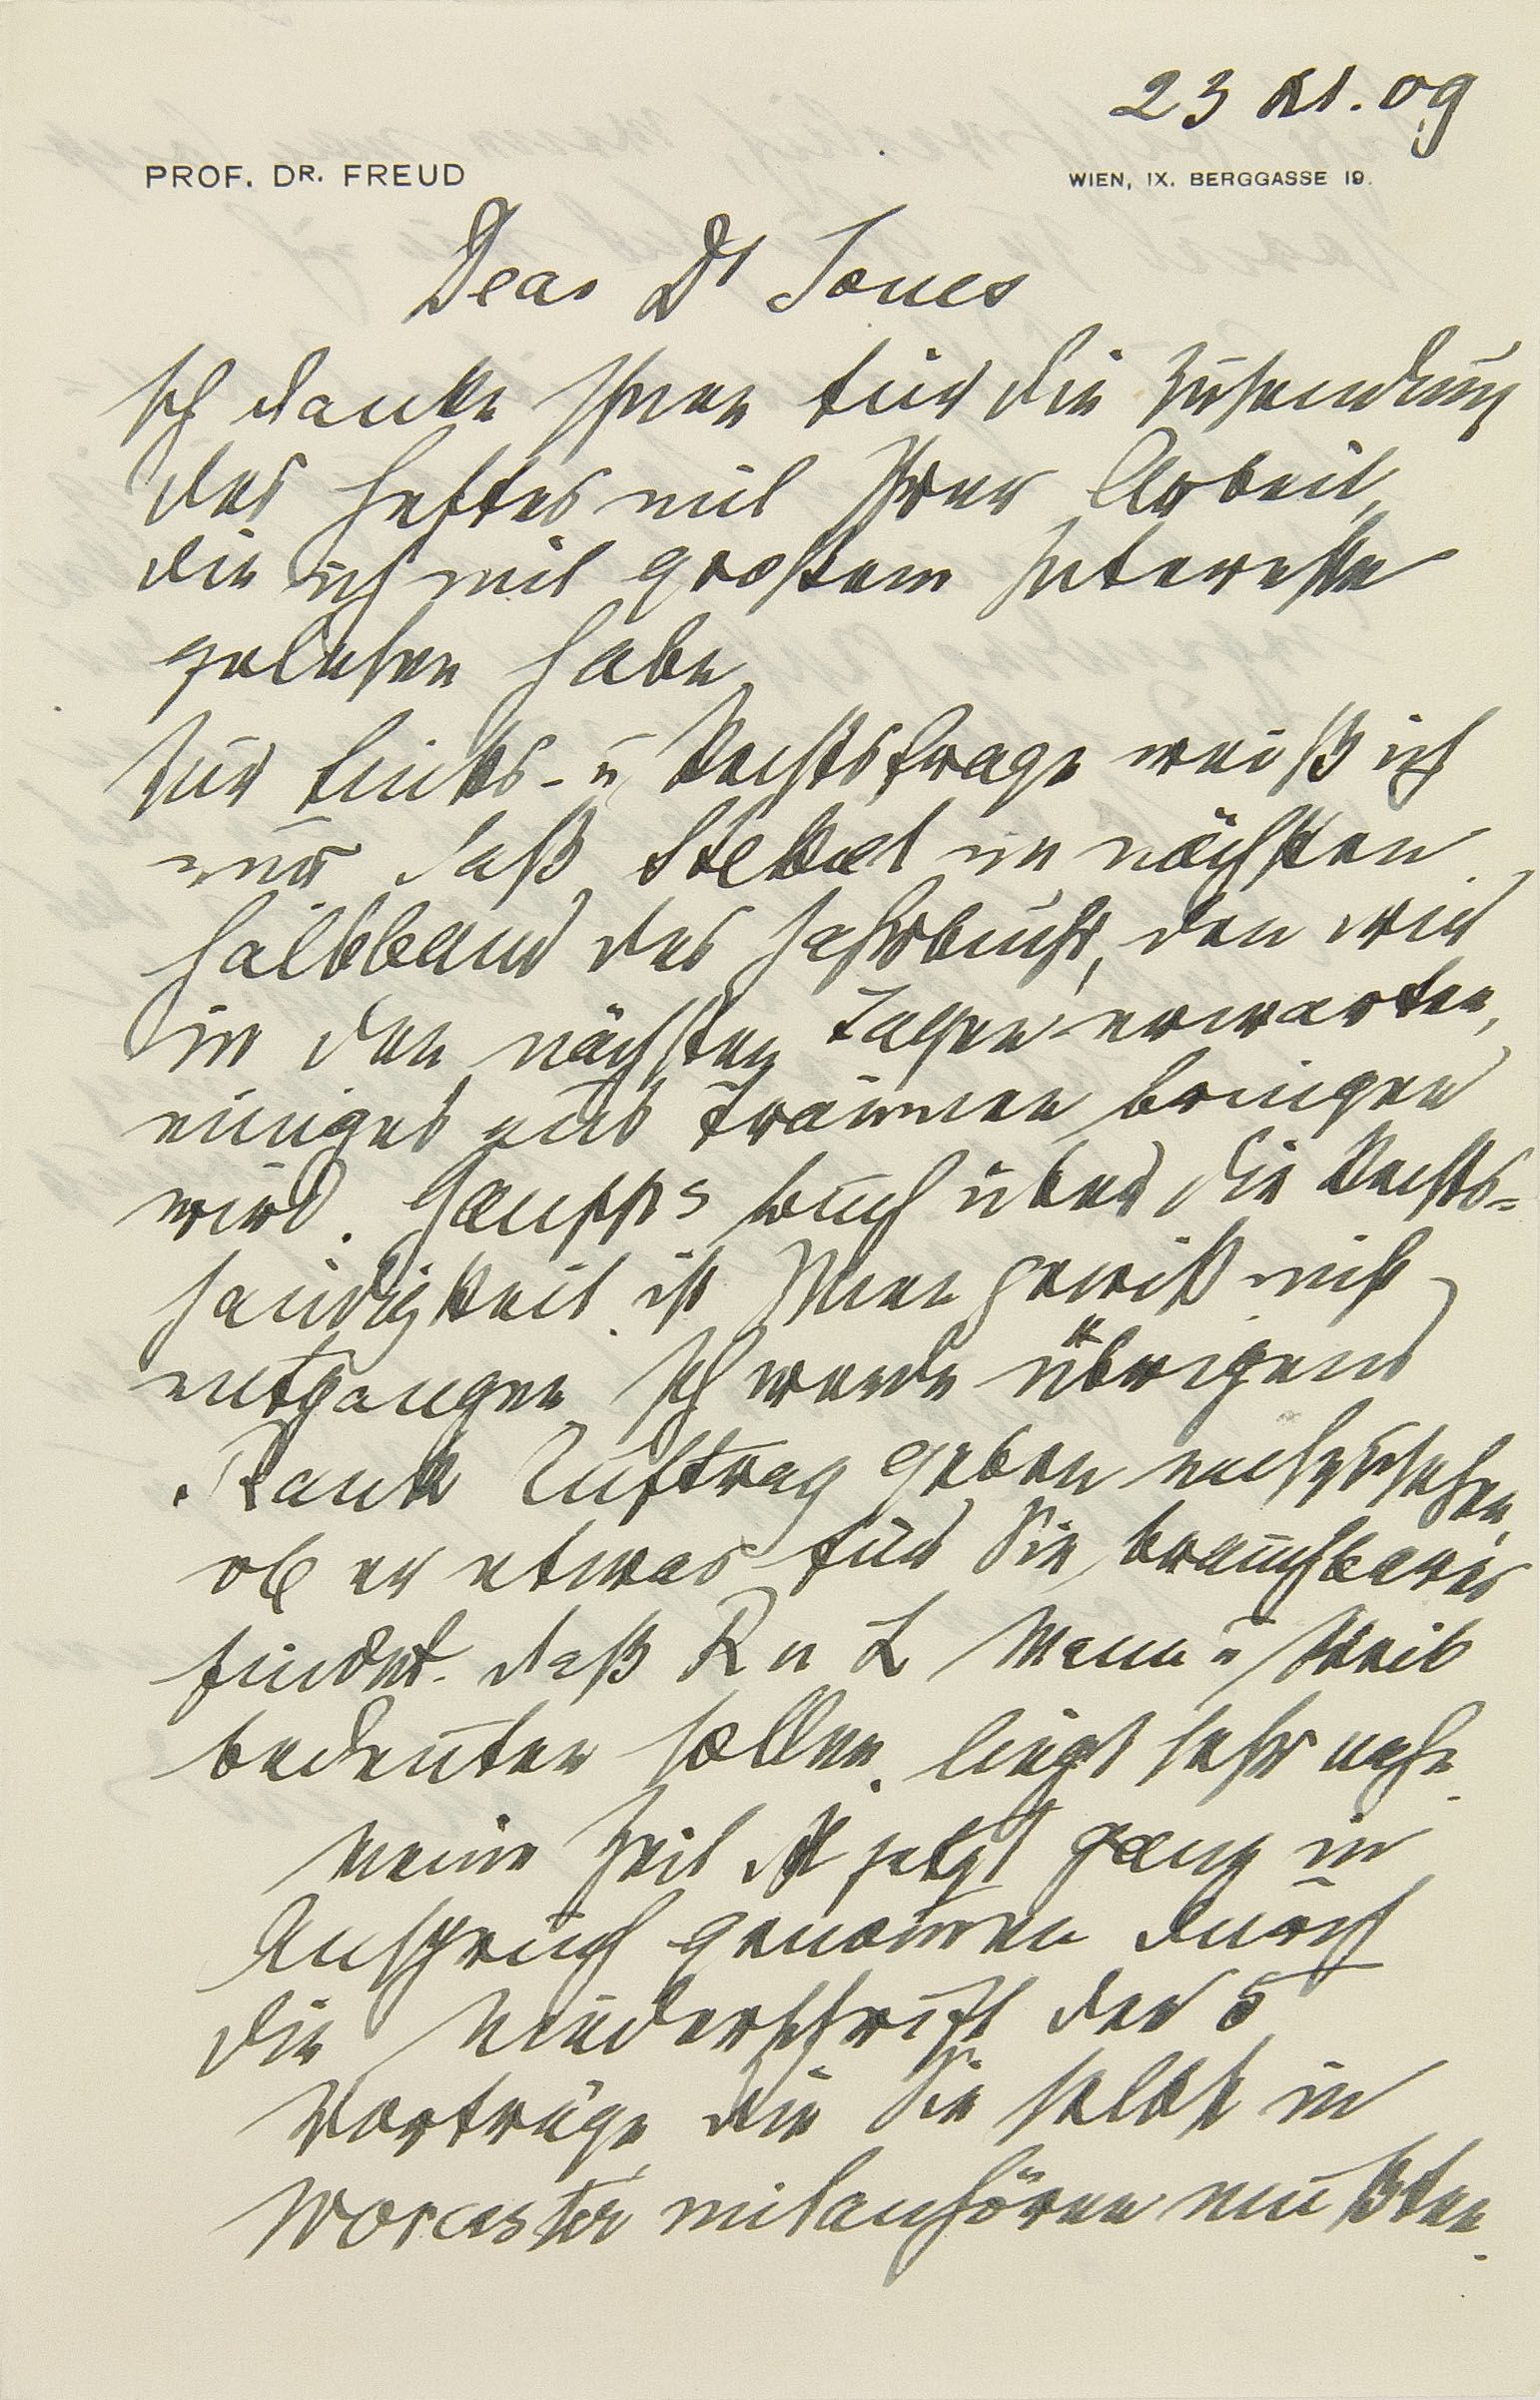 23 XI. 09
PROF. DR. FREUD
WIEN, IX. BERGGASSE 19.
Dear Dr Jones
Ich danke Ihnen für die Zusendung
des Heftes mit Ihrer Arbeit,
die ich mit großem Interesse
gelesen habe.
Zur Links- u Rechtsfrage weiß ich
nur, daß Stekel im nächsten
Halbband des Jahrbuchs, den wir
in den nächsten Tagen erwarten,
einiges aus Träumen bringen
wird. Buch über die Rechts-
händigkeit ist Ihnen gewiß nicht
entgangen. Ich werde übrigens
Rank Auftrag geben nachzusehen,
ob er etwas für Sie brauchbares
findet. daß R u L Mann u Weib
bedeuten sollen, liegt sehr nahe.
Meine Zeit ist jetzt ganz in
Anspruch genommen durch
die Niederschrift der 5
Vorträge, die Sie selbst in
Worcester mitanhören mußten.